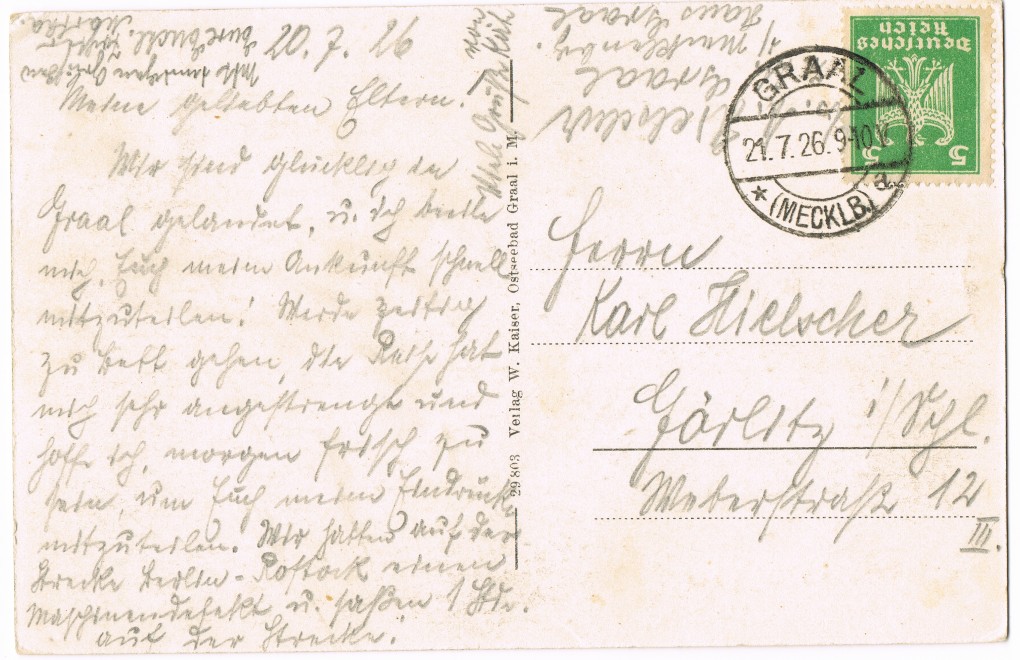 20. 7. 26
Meine geliebten Eltern.
Wir sind glücklich in
Graal gelandet, u. ich beeile
mich, Euch meine Ankunft schnell
mitzuteilen! Werde zeitig
zu Bett gehen, die Reise hat
mich sehr angestrengt und
hoffe ich, morgen frisch zu
sein, um Euch meine Eindrücke
mitzuteilen! Wir hatten auf der
Strecke Berlin-Rostock einen
Maschinendefekt u. saßen 1 Stde.
auf der Strecke!
Mit innigen Grüßen
Eure
Viele Grüße von
29803 Verlag W. Kaiser, Ostseebad Graal i. M.
Hielscher
Graal
i/ Mecklenbg.
Haus Graal
Deutsches
Reich
5 5
GRAAL
21.7.26.9-10V
* (MECKLB) a
Herrn
Karl Hielscher
Görlitz i/Schl.
Weberstraße 12
III.